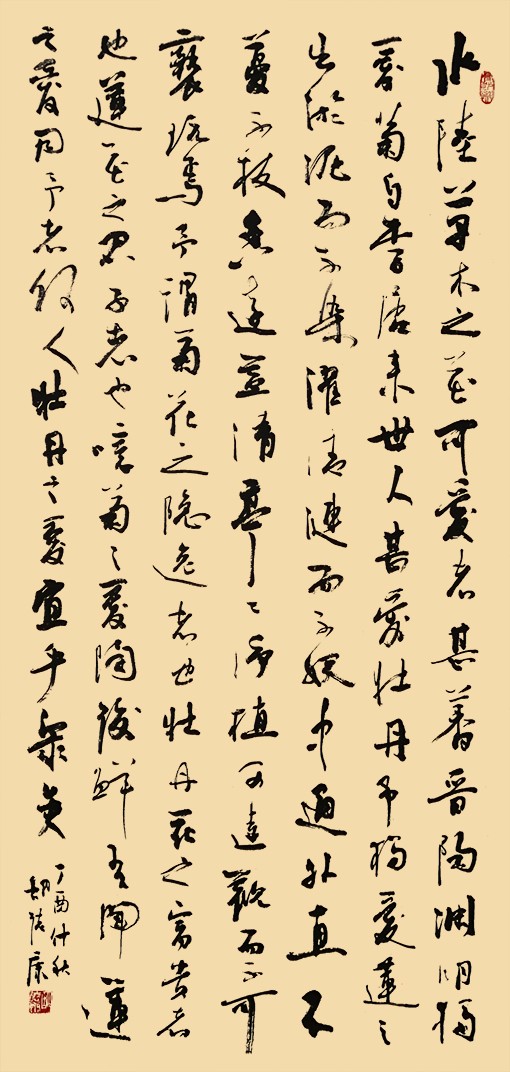 水陸草木之花可愛者甚蕃晉陶淵明獨
愛菊自李唐来世人甚愛牡丹予獨愛蓮之
出淤泥而不染濯清漣而不妖中通外直不
蔓不枝香遠益清亭〻淨植可遠觀而不可
褻玩焉予謂菊花之隱逸者也牡丹花之富贵者
也蓮花之君子者也噫菊之愛陶後鮮有聞蓮
之愛同予者何人牡丹之愛宜乎眾矣
丁酉仲秋
胡康